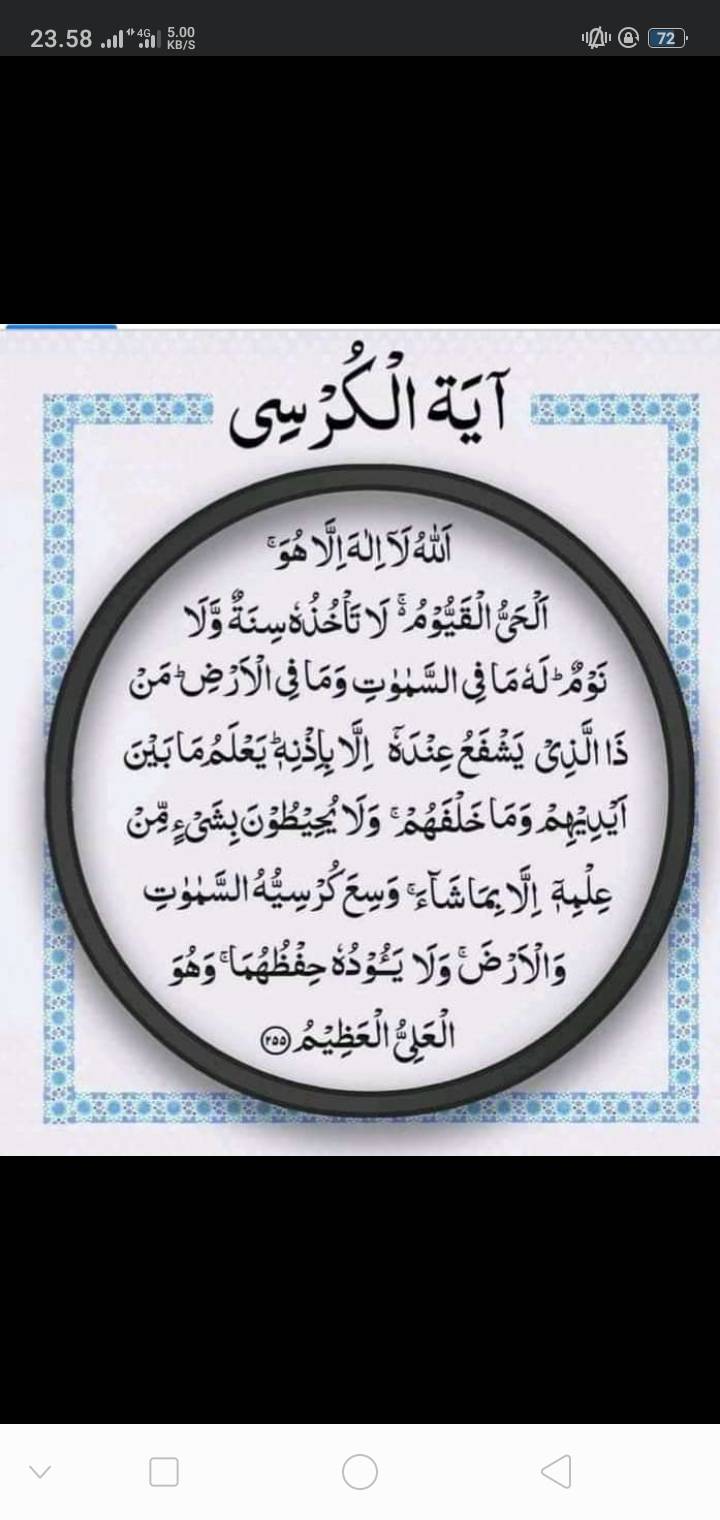 23.58 4G 5.00 KB/S 72
آيَة الْكُرْسِى
اَللّٰهُ لَاۤ اِلٰهَ اِلَّا هُوَ ۚ
اَلْحَىُّ الْقَيُّوْمُ ۚ۬ لَا تَاْخُذُهٗ سِنَةٌ وَّلَا
نَوْمٌ ؕ لَهٗ مَا فِى السَّمٰوٰتِ وَمَا فِى الْاَرْضِ ؕ مَنْ
ذَا الَّذِىْ يَشْفَعُ عِنْدَهٗۤ اِلَّا بِاِذْنِهٖ ؕ يَعْلَمُ مَا بَيْنَ
اَيْدِيْهِمْ وَمَا خَلْفَهُمْ ۚ وَلَا يُحِيْطُوْنَ بِشَىْءٍ مِّنْ
عِلْمِهٖۤ اِلَّا بِمَا شَآءَ ۚ وَسِعَ كُرْسِيُّهُ السَّمٰوٰتِ
وَالْاَرْضَ ۚ وَلَا يَـُٔوْدُهٗ حِفْظُهُمَا ۚ وَهُوَ
الْعَلِىُّ الْعَظِيْمُ ۲۵۵